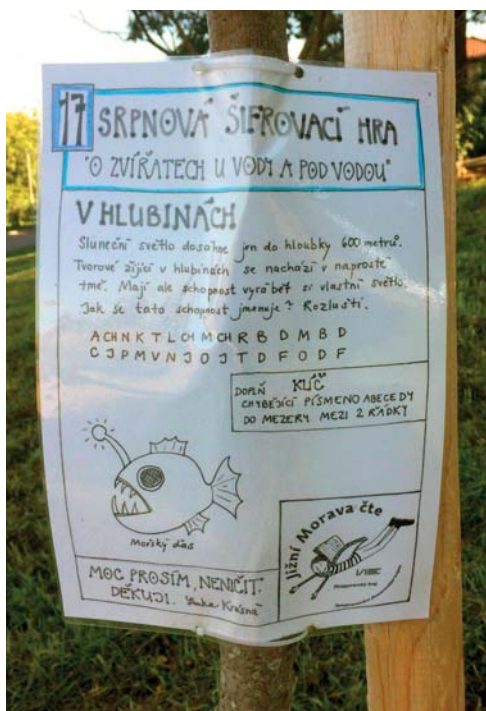 17 SRPNOVÁ ŠIFROVACÍ HRA
"O ZVÍŘATECH U VODY A POD VODOU"
V HLUBINÁCH
Sluneční světlo dosáhne jen do hloubky 600 metrů.
Tvorové žijící v hlubinách se nachází v naprosté
tmě. Mají ale schopnost vyrábět si vlastní světlo.
Jak se tato schopnost jmenuje? Rozlušti.
A CH N K T L CH M CH R B D M B D
C J P M V N J O J T D F O D F
KLÍČ
DOPLŇ
CHYBĚJÍCÍ PÍSMENO ABECEDY
DO MEZERY MEZI 2 ŘÁDKY
Mořský ďas
Jižní Morava čte
MOC PROSÍM, NENIČIT.
DĚKUJI. Krásná